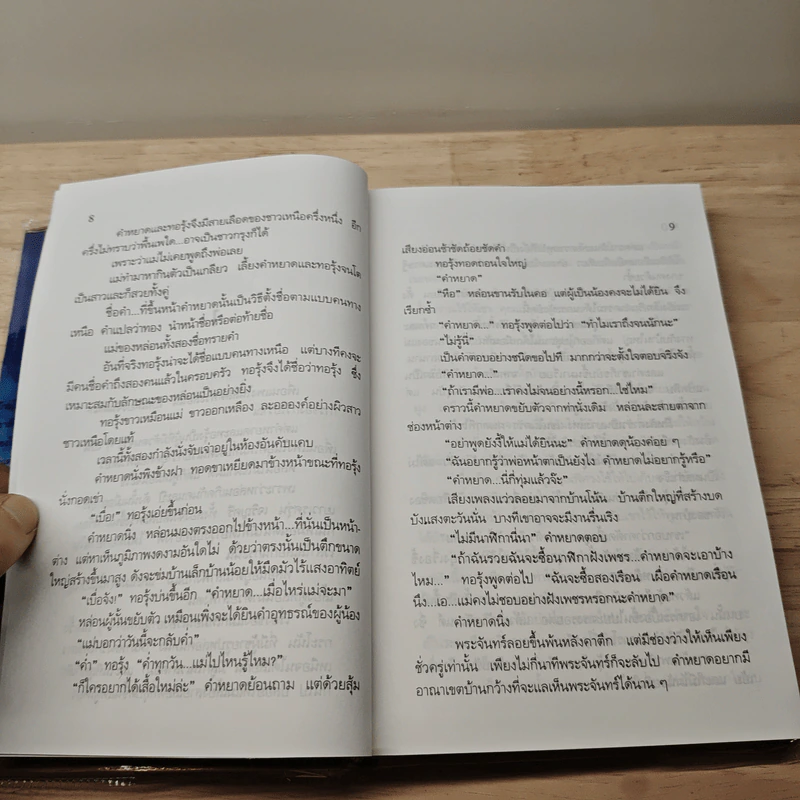 8
คำหยาดและทอรุ้งจึงมีสายเลือดของชาวเหนือครึ่งหนึ่ง อีก
ครึ่งไม่ทราบว่าพื้นเพใด...อาจเป็นชาวกรุงก็ได้
เพราะว่าแม่ไม่เคยพูดถึงพ่อเลย
แม่ทำมาหากินตัวเป็นเกลียว เลี้ยงคำหยาดและทอรุ้งจนโต
เป็นสาวและก็สวยทั้งคู่
ชื่อคำ...ที่ขึ้นหน้าคำหยาดนั้นเป็นวิธีตั้งชื่อตามแบบคนทาง
เหนือ คำแปลว่าทอง นำหน้าชื่อหรือต่อท้ายชื่อ
แม่ของหล่อนทั้งสองชื่อทรายคำ
อันที่จริงทอรุ้งน่าจะได้ชื่อแบบคนทางเหนือ แต่บางทีคงจะ
มีคนชื่อคำถึงสองคนแล้วในครอบครัว ทอรุ้งจึงได้ชื่อว่าทอรุ้ง ซึ่ง
เหมาะสมกับลักษณะของหล่อนเป็นอย่างยิ่ง
ทอรุ้งขาวเหมือนแม่ ขาวออกเหลือง ละอองค์อย่างผิวสาว
ชาวเหนือโดยแท้
เวลานี้ทั้งสองกำลังนั่งจับเจ่าอยู่ในห้องอันคับแคบ
คำหยาดนั่งพิงข้างฝา ทอดขาเหยียดมาข้างหน้าขณะที่ทอรุ้ง
นั่งกอดเข่า
“เบื่อ!” ทอรุ้งเอ่ยขึ้นก่อน
คำหยาดนิ่ง หล่อนมองตรงออกไปข้างหน้า...ที่นั่นเป็นหน้า-
ต่าง แต่หาเห็นภูมิภาพงดงามอันใดไม่ ด้วยว่าตรงนั้นเป็นตึกขนาด
ใหญ่สร้างขึ้นมาสูง ดังจะข่มบ้านเล็กบ้านน้อยให้มืดมัวไร้แสงอาทิตย์
“เบื่อจัง!” ทอรุ้งบ่นขึ้นอีก “คำหยาด...เมื่อไหร่แม่จะมา”
หล่อนผู้นั้นขยับตัว เหมือนเพิ่งจะได้ยินคำอุทธรณ์ของผู้น้อง
“แม่บอกว่าวันนี้จะกลับค่ำ”
“ค่ำ” ทอรุ้ง “ค่ำทุกวัน...แม่ไปไหนรู้ไหม?”
“ก็ใครอยากได้เสื้อใหม่ล่ะ” คำหยาดย้อนถาม แต่ด้วยสุ้ม
9
เสียงอ่อนช้าชัดถ้อยชัดคำ
ทอรุ้งทอดถอนใจใหญ่
“คำหยาด”
“หือ” หล่อนขานรับในคอ แต่ผู้เป็นน้องคงจะไม่ได้ยิน จึง
เรียกซ้ำ
“คำหยาด...” ทอรุ้งพูดต่อไปว่า “ทำไมเราถึงจนนักนะ”
“ไม่รู้นี่”
เป็นคำตอบอย่างชนิดขอไปที มากกว่าจะตั้งใจตอบจริงจัง
“คำหยาด...”
“ถ้าเรามีพ่อ...เราคงไม่จนอย่างนี้หรอก...ใช่ไหม”
คราวนี้คำหยาดขยับตัวจากท่านั่งเดิม หล่อนละสายตาจาก
ช่องหน้าต่าง
“อย่าพูดยังงี้ให้แม่ได้ยินนะ” คำหยาดดุน้องค่อย ๆ
“ฉันอยากรู้ว่าพ่อหน้าตาเป็นยังไง คำหยาดไม่อยากรู้หรือ”
“คำหยาด...นี่กี่ทุ่มแล้วจ๊ะ”
เสียงเพลงแว่วลอยมาจากบ้านโน้น บ้านตึกใหญ่ที่สร้างบด
บังแสงตะวันนั่น บางทีเขาอาจจะมีงานรื่นเริง
“ไม่มีนาฬิกานี่นา” คำหยาดตอบ
“ถ้าฉันรวยฉันจะซื้อนาฬิกาฝังเพชร...คำหยาดจะเอาบ้าง
ไหม...” ทอรุ้งพูดต่อไป “ฉันจะซื้อสองเรือน เผื่อคำหยาดเรือน
นึง...เอ...แม่คงไม่ชอบอย่างฝังเพชรหรอกนะคำหยาด”
คำหยาดนิ่ง
พระจันทร์ลอยขึ้นพ้นหลังคาตึก แต่มีช่องว่างให้เห็นเพียง
ชั่วครู่เท่านั้น เพียงไม่กี่นาทีพระจันทร์ก็จะลับไป คำหยาดอยากมี
อาณาเขตบ้านกว้างที่จะแลเห็นพระจันทร์ได้นาน ๆ